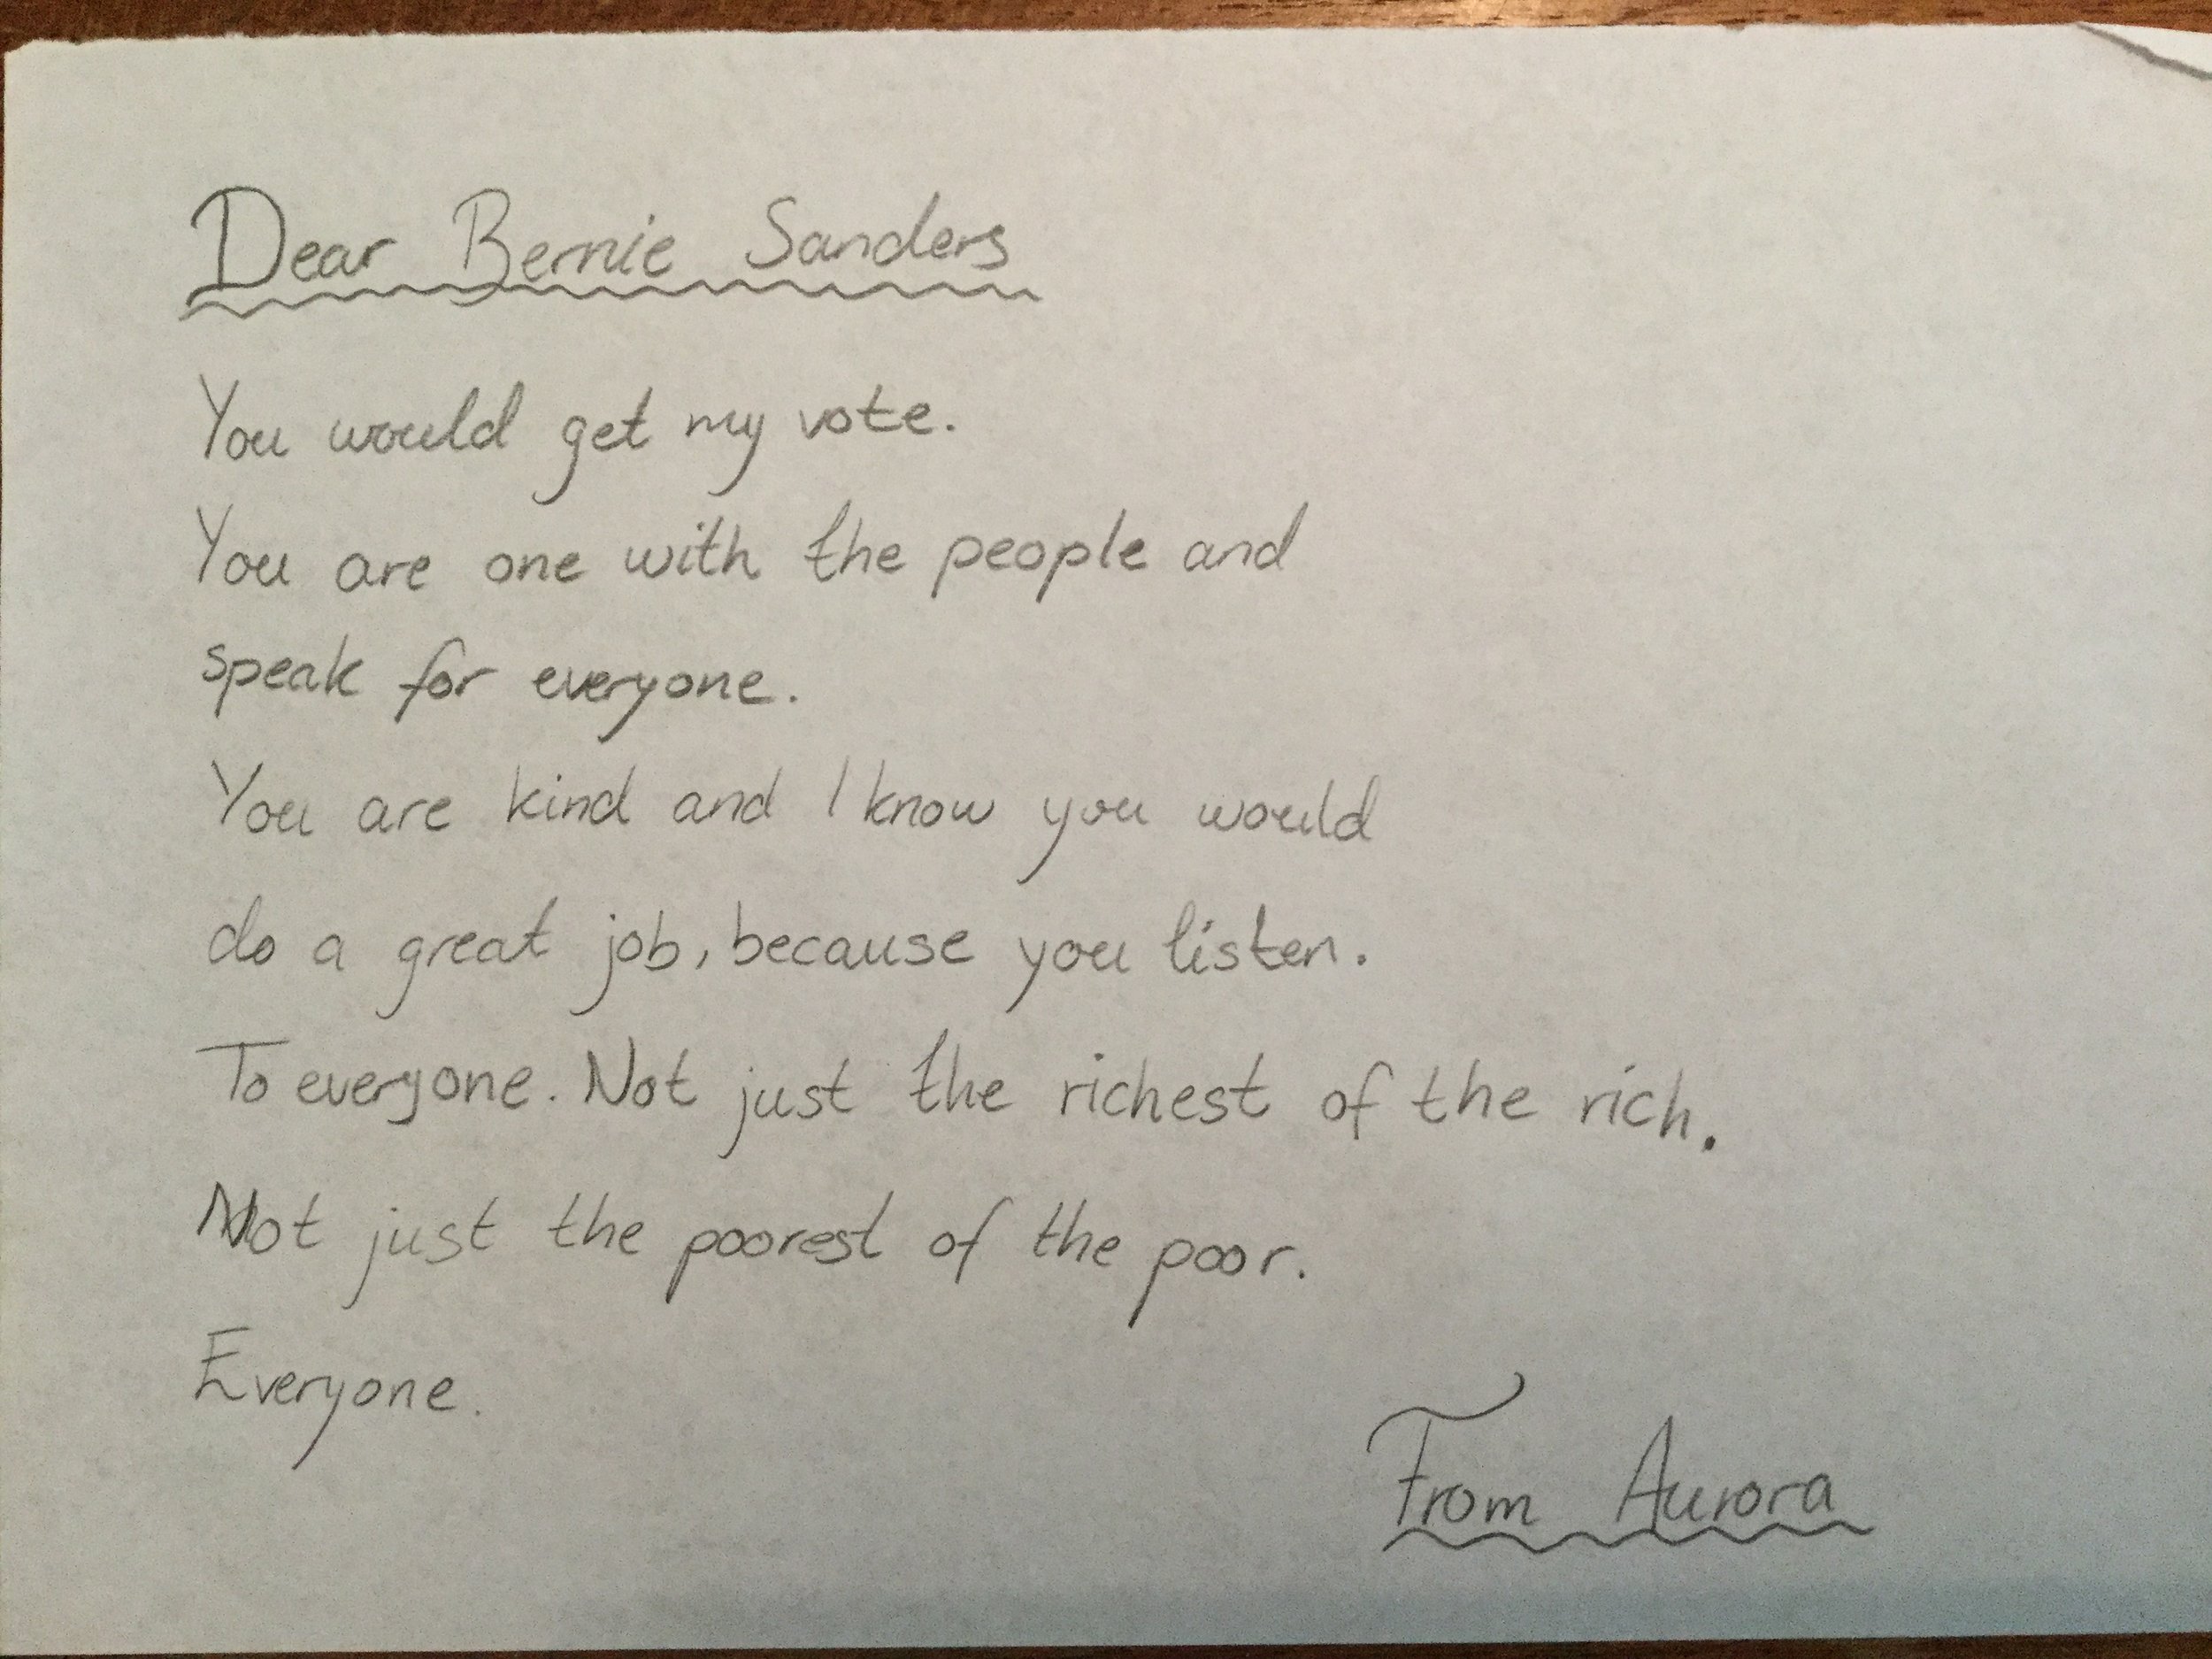 Dear Bernie Sanders
You would get my vote.
You are one with the people and
speak for everyone.
You are kind and I know you would
do a great job, because you listen.
To everyone. Not just the richest of the rich.
Not just the poorest of the poor.
Everyone.
From Aurora